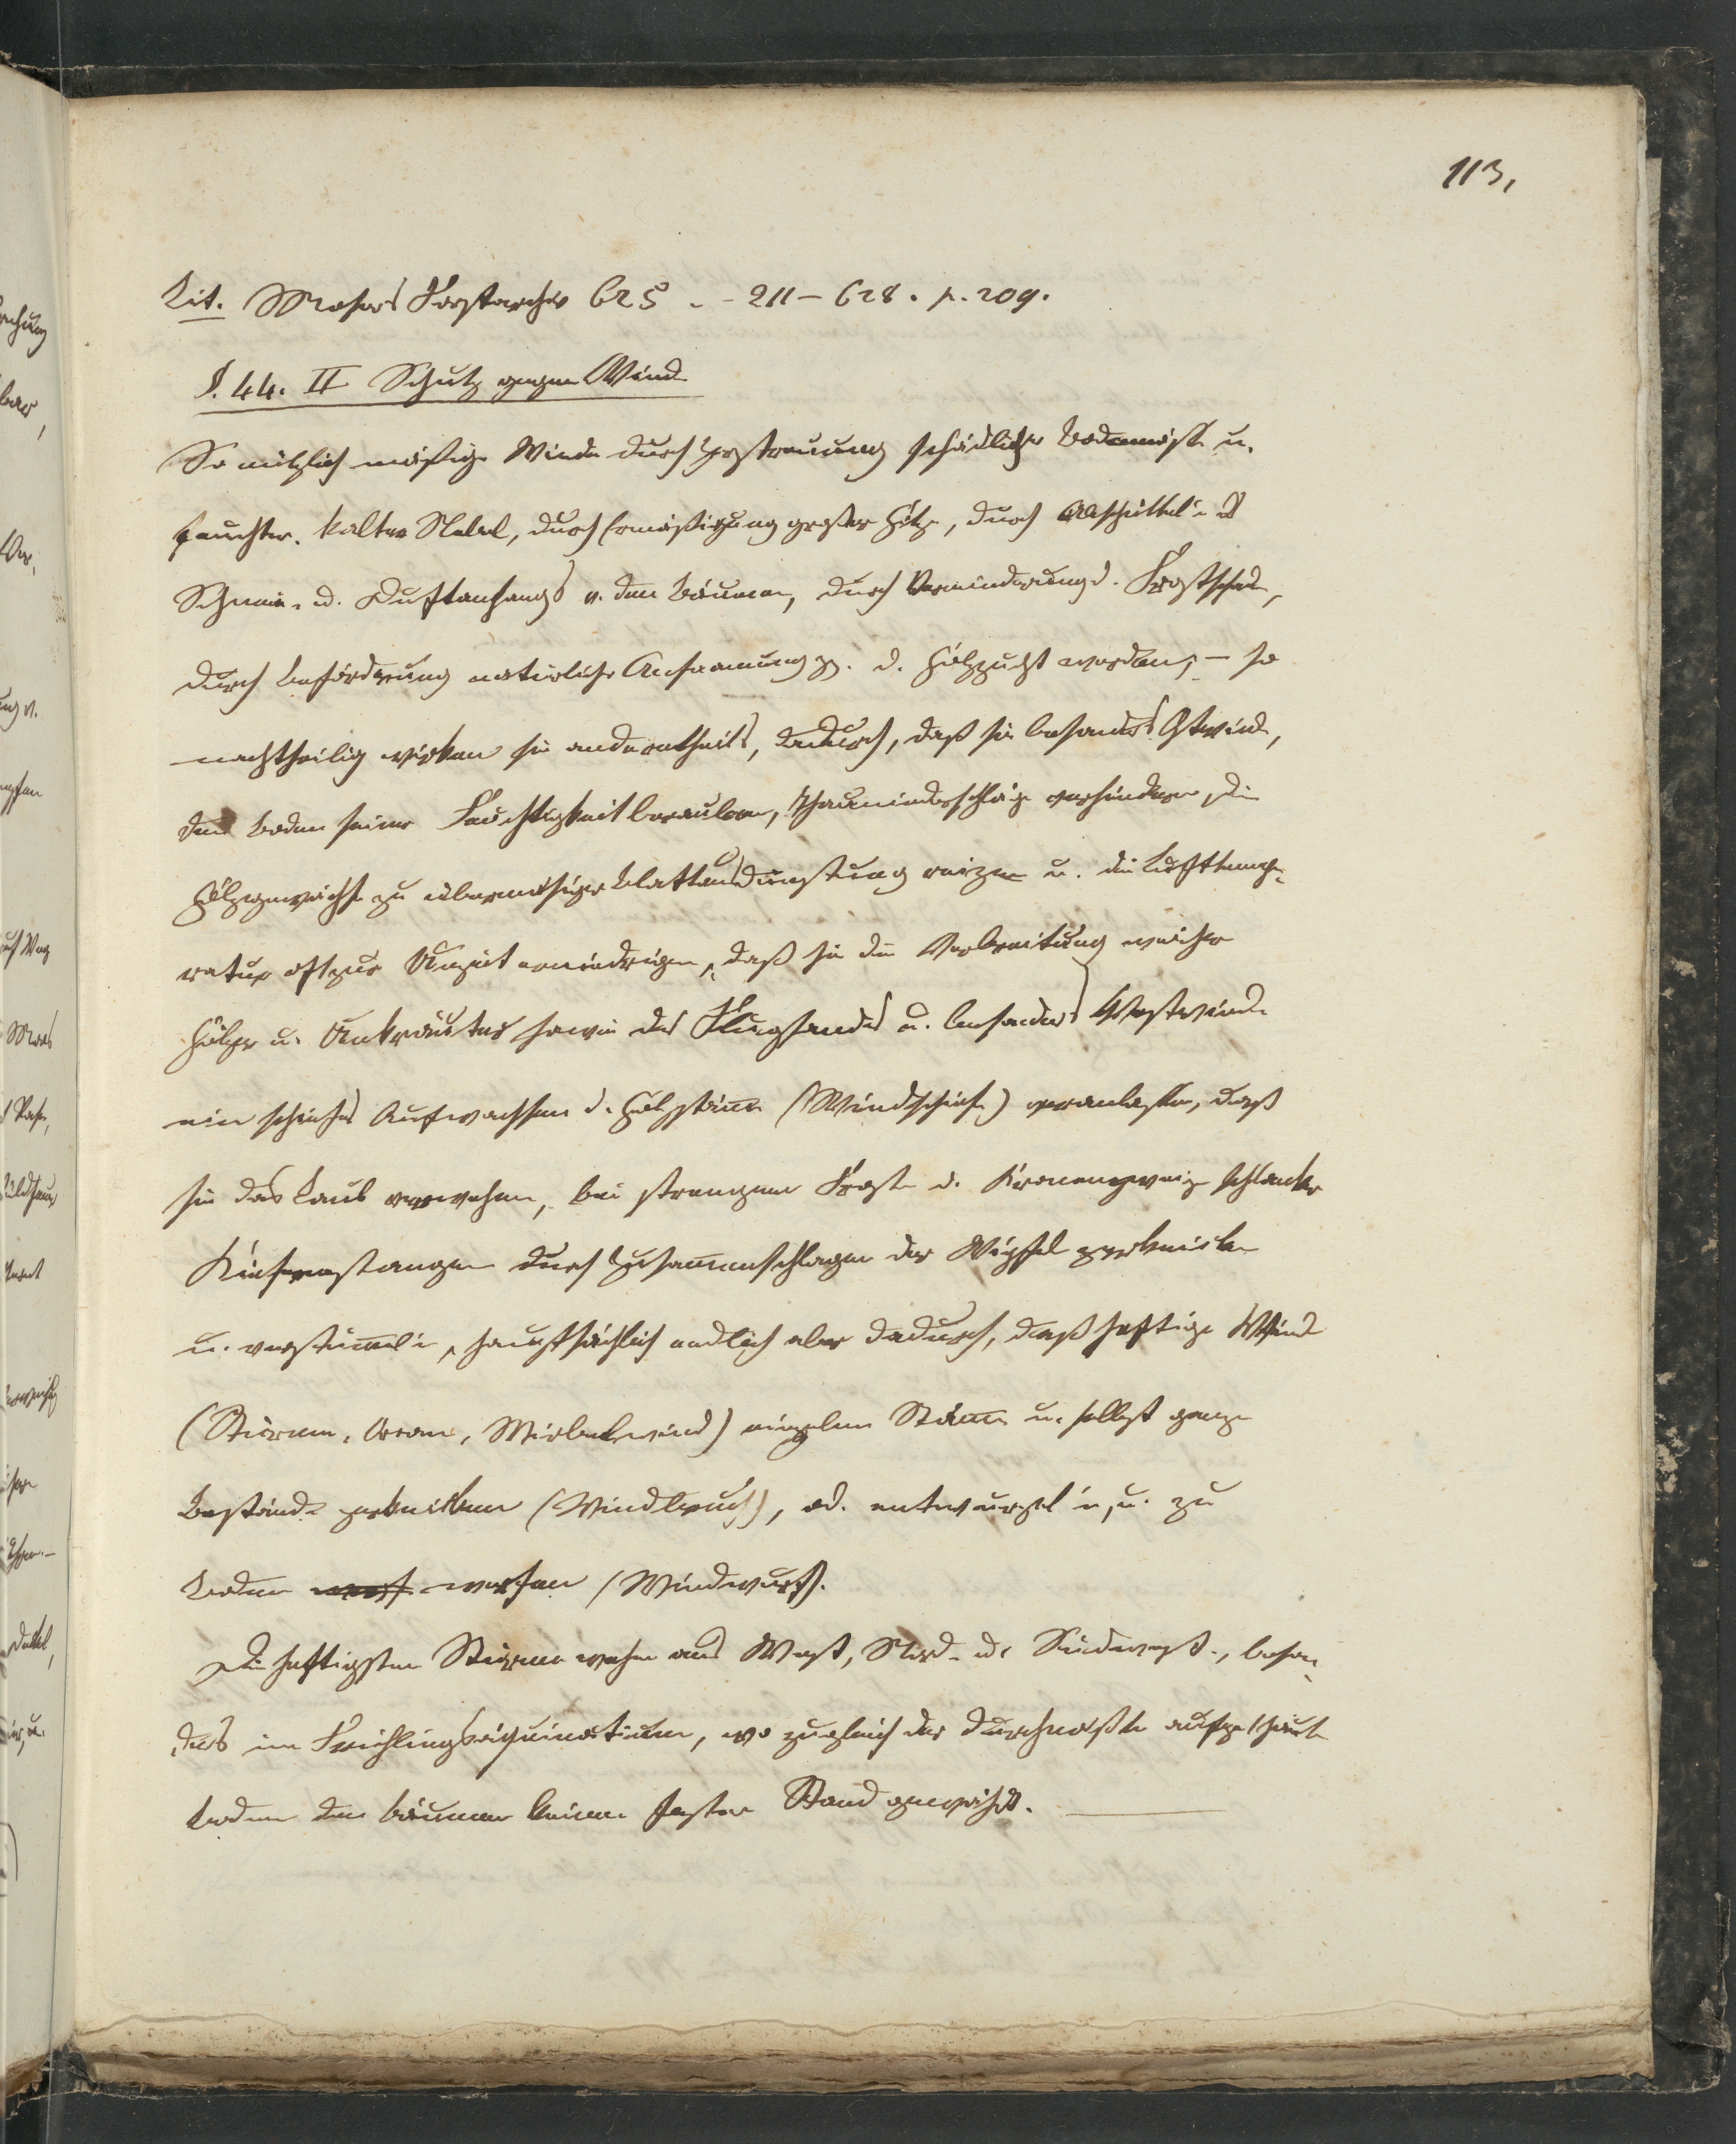 113,
Lit. Mosers Forstarchiv b25 . - 211 - b28 . p. 209.
§. 44. II Schutz gegen Wind
So nützlich mäsige Winde durch Zerstreuung schädlicher Bodennässe u.
feuchter, kalter Nebel, durch Ermäsigung großer Hitze, durch Abschütteln d
Schnee- u. Duftanhangs v. den Bäumen, durch Verminderung d. Frostschad.,
durch Beförderung natürlicher Ansaamung pp. d. Holzzucht werden, – so
nachtheilig wirken sie anderntheils, dadurch, daß sie besonders Ostwinde,
den Boden seiner Feuchtigkeit berauben, Thauniederschläge verhindern, die
Holzgewächse zu übermäsiger Blattausdünstung reizen u. die Lufttempe-
ratur oft zur Unzeit erniedrigen, daß sie die Verbreitung weicher
Hölzer u. Unkräuter sowie des Flugsandes u. besonders Westwinde
ein schiefes Aufwachsen d. Holzstäme (Windschiefe) veranlaßen, daß
sie das Laub verwehen, bei strengem Froste d. Kronenzweige schlanker
Kiefernstangen durch Zusamenschlagen der Wipfel zerknicken
u. verstümeln, hauptsächlich endlich aber dadurch, daß heftige Winde
(Stürme, Orcane, Wirbelwind) einzelne Stäme u. selbst ganze
Bestände zerknicken (Windbruch), od. entwurzeln, u. zu
Boden werf werfen (Windwurf).
Die heftigsten Stürme wehen aus West, Nord- u. Südwest, beson-
ders im Frühlingsäquinoctium, wo zugleich der durchnäßte aufgethaute
Boden den Bäumen keinen festen Stand gewährt.